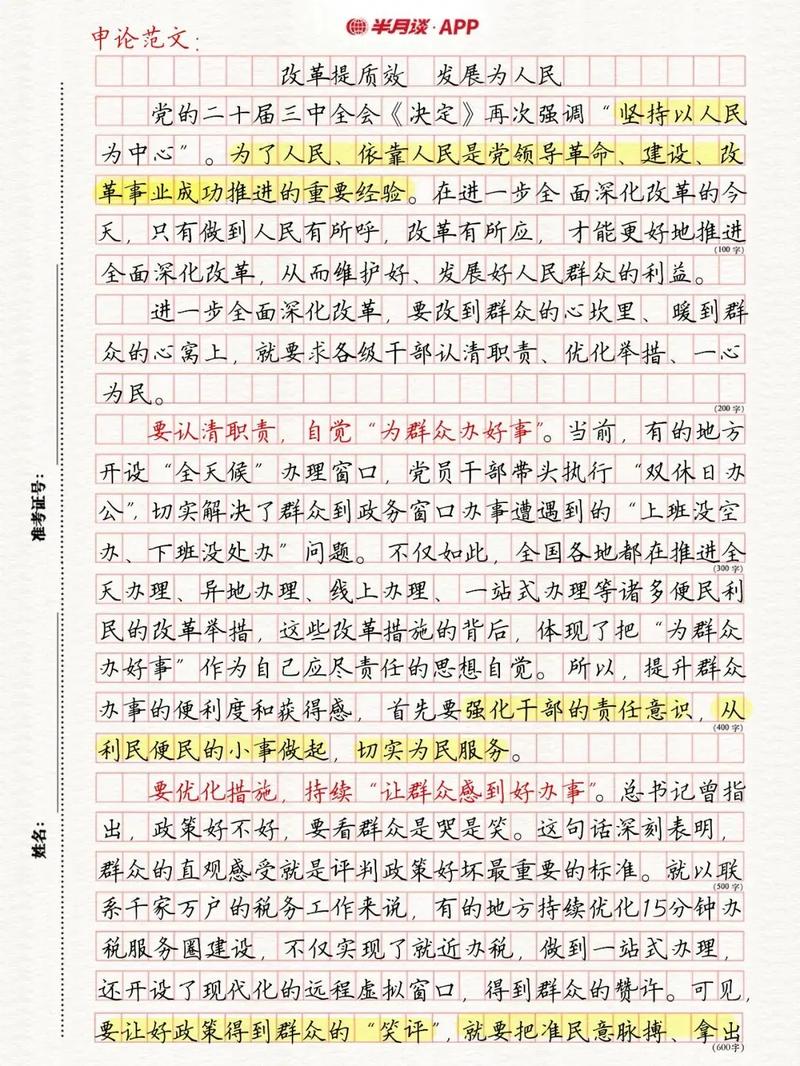 半月谈·APP
申论范文：
改革提质效 发展为人民
党的二十届三中全会《决定》再次强调“坚持以人民
为中心”。为了人民、依靠人民是党领导革命、建设、改
革事业成功推进的重要经验。在进一步全面深化改革的今
天，只有做到人民有所呼，改革有所应，才能更好地推进
(100字)
全面深化改革，从而维护好、发展好人民群众的利益。
进一步全面深化改革，要改到群众的心坎里、暖到群
众的心窝上，就要求各级干部认清职责、优化举措、一心
为民。
(200字)
要认清职责，自觉“为群众办好事”。当前，有的地方
开设“全天候”办理窗口，党员干部带头执行“双休日办
公”，切实解决了群众到政务窗口办事遭遇到的“上班没空
办、下班没处办”问题。不仅如此，全国各地都在推进全
(300字)
天办理、异地办理、线上办理、一站式办理等诸多便民利
民的改革举措，这些改革措施的背后，体现了把“为群众
办好事”作为自己应尽责任的思想自觉。所以，提升群众
办事的便利度和获得感，首先要强化干部的责任意识，从
(400字)
利民便民的小事做起，切实为民服务。
要优化措施，持续“让群众感到好办事”。总书记曾指
出，政策好不好，要看群众是哭是笑。这句话深刻表明，
群众的直观感受就是评判政策好坏最重要的标准。就以联
(500字)
系千家万户的税务工作来说，有的地方持续优化15分钟办
税服务圈建设，不仅实现了就近办税，做到一站式办理，
还开设了现代化的远程虚拟窗口，得到群众的赞许。可见，
要让好政策得到群众的“笑评”，就要把准民意脉搏、拿出
(600字)
准考证号：
姓名：